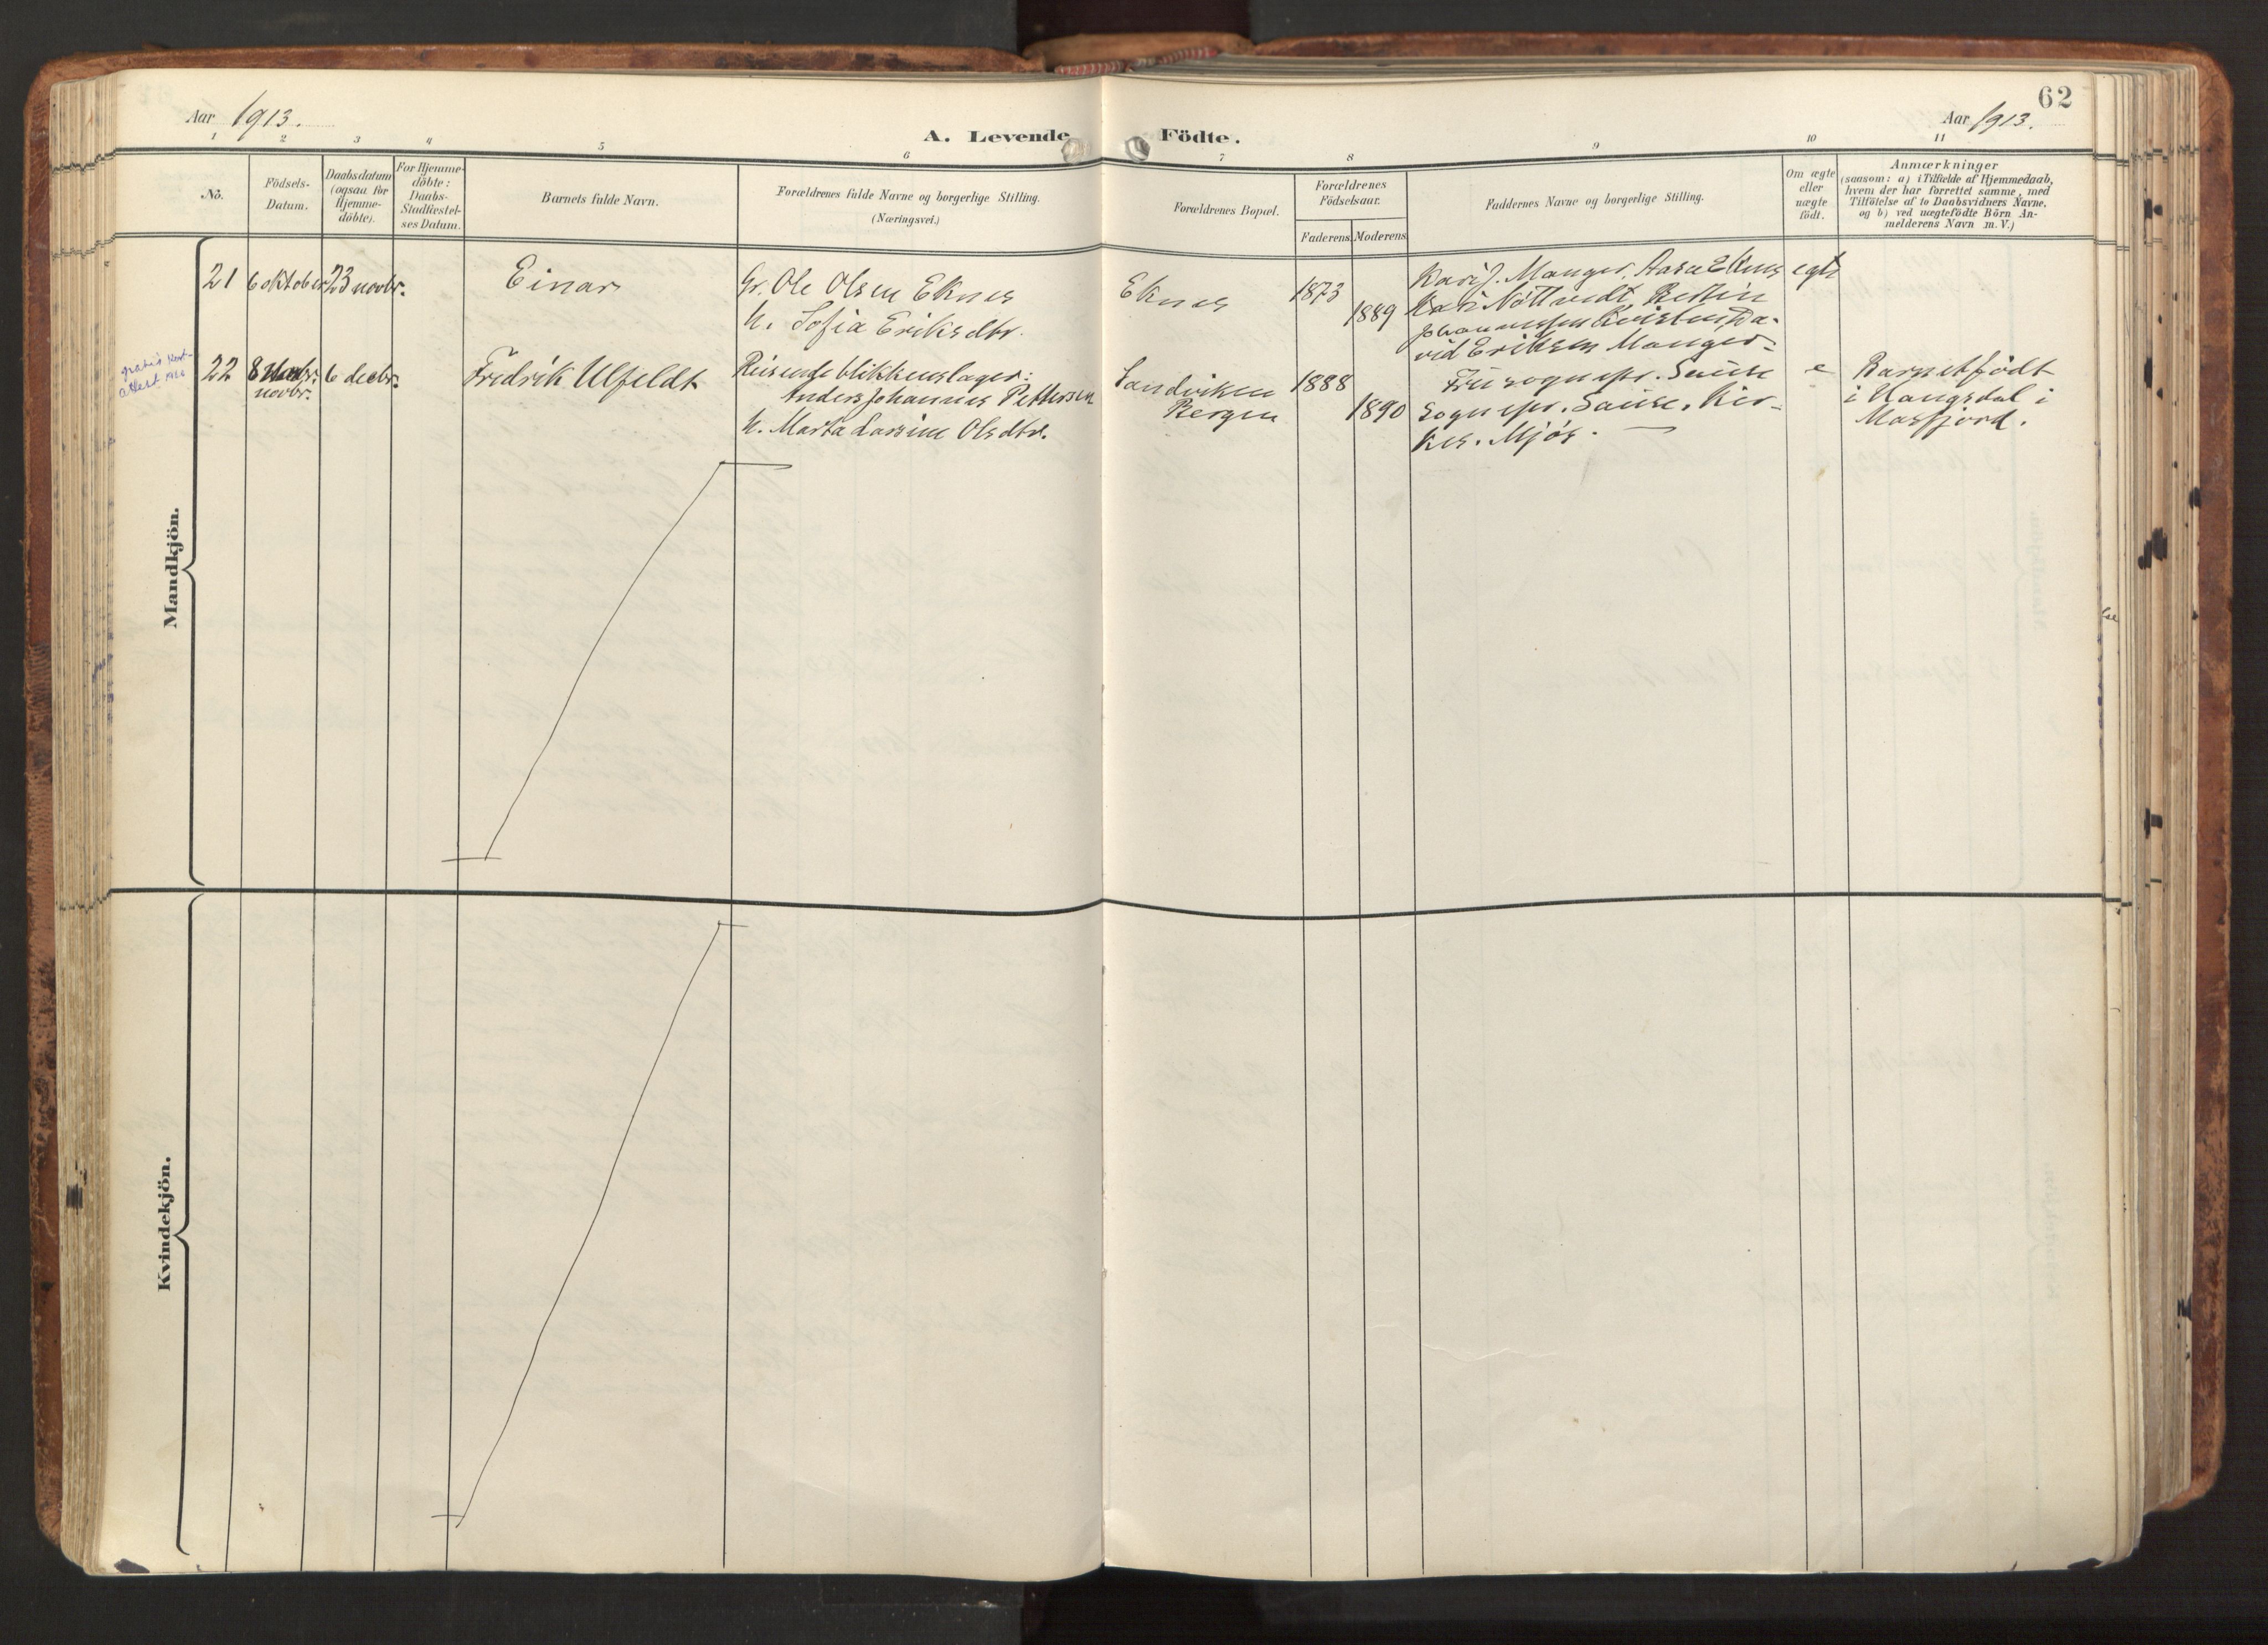 62
Aar 1913.
A. Levende Födte.
Aar 1913.
1 2 3 4 5 6 7 8 9 10 11
No.
Födsels-
Datum.
Daabsdatum
(ogsaa for
Hjemme-
döbte).
For Hjemme-
döbte:
Daabs-
Stadfæstel-
ses Datum.
Barnets fulde Navn.
Forældrenes fulde Navne og borgerlige Stilling.
(Næringsvei.)
Forældrenes Bopæl.
Forældrenes
Födselsaar.
Faderens. Moderens.
Faddernes Navne og borgerlige Stilling.
Om ægte
eller
uægte
födt.
Anmærkninger
(saasom: a) i Tilfælde af Hjemmedaab,
hvem der har forrettet samme, med
Tilföielse af to Daabsvidners Navne,
og b) ved uægtefödte Börn An-
melderens Navn m. V.)
Mandkjön.
21 6 oktober 23 novbr. Einar
Gr. Ole Olsen Eknes
h. Sofia Eriksdtr.
Eknes
1873
1889
Kari J. Manger, Aasa Eknes
Kari Nöttvedt, Bertin
Johannessen Kvistun, Da-
vid Eriksen Manger.
egte
gratis
attest
22 8 novbr. 6 decbr. Fredrik Ulfeldt
Reisende blikkenslager:
Anders Johannes Pettersen
h. Marta Larsine Olsdtr.
Sandviken
Bergen
1888
1890
Fru sognepr. Sause
Sognepr. Sause, Kir-
kes. Mjös.
e
Barnet født
i Haugsdal i
Masfjord.
Kvindekjön.